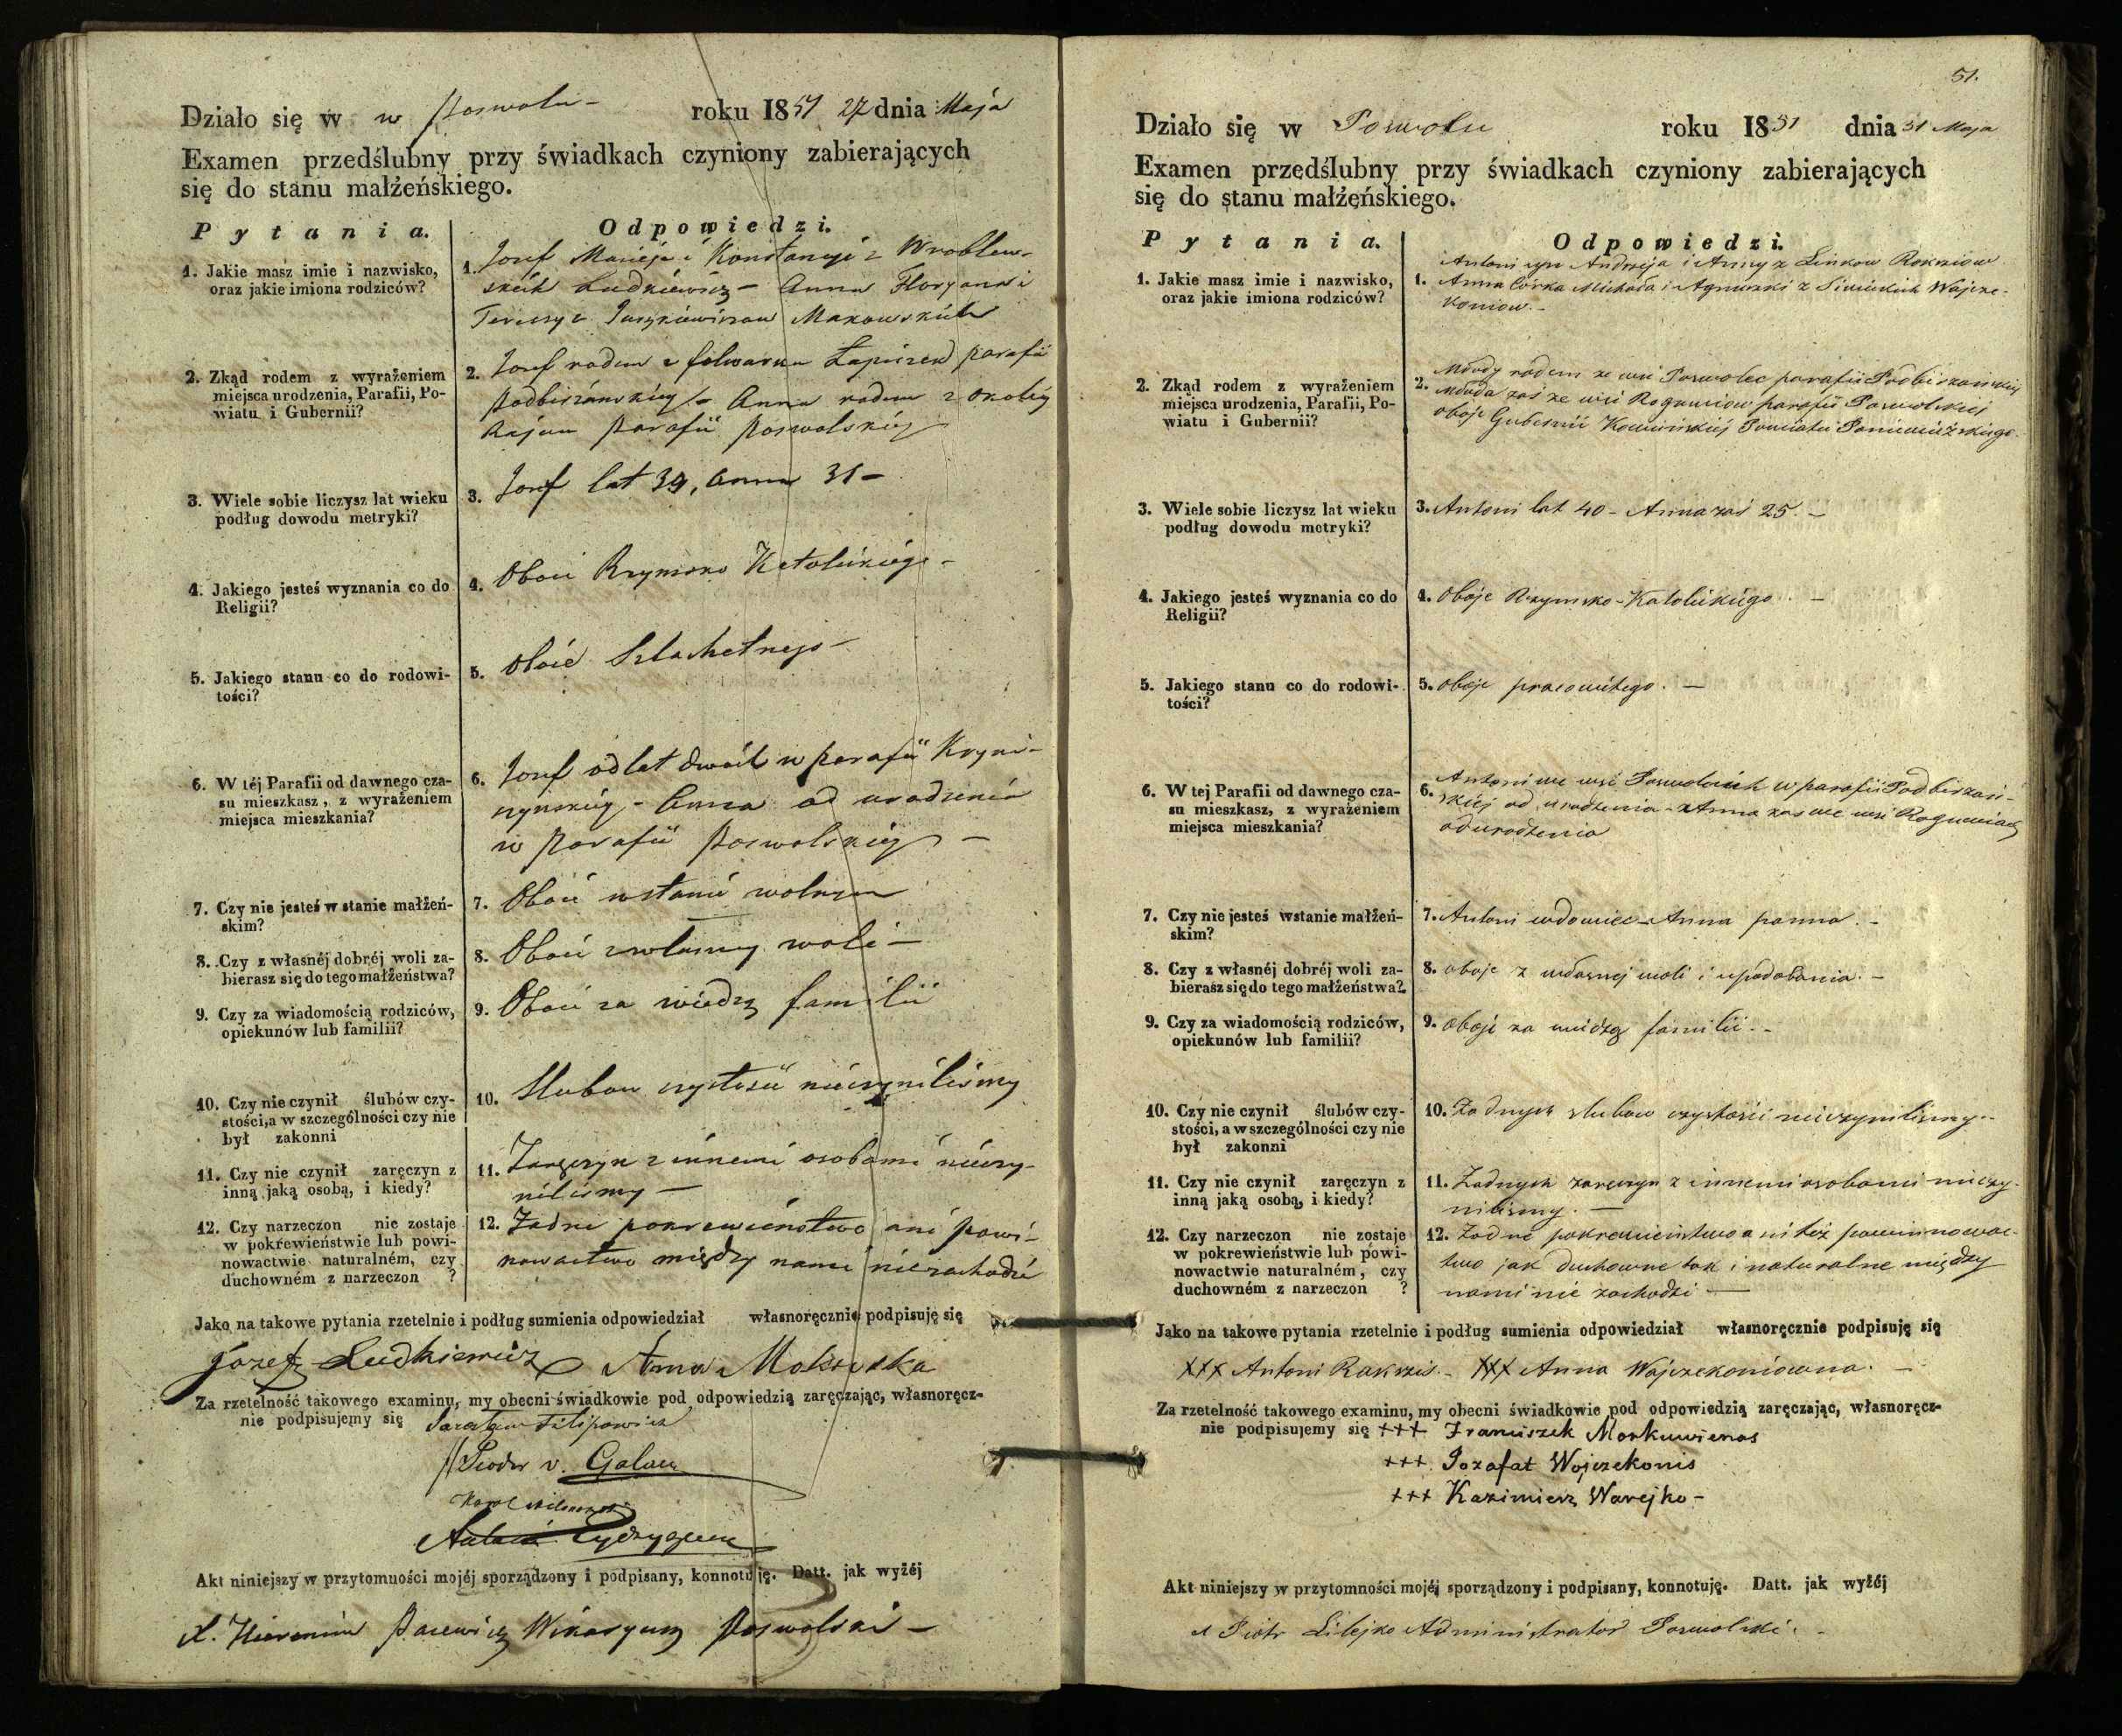 Działo się w w Poswolu – roku 1851 27 dnia Maja
Examen przedślubny przy świadkach czyniony zabierających
się do stanu małżeńskiego.
Pytania. Odpowiedzi.
1. Jakie masz imie i nazwisko,
oraz jakie imiona rodziców?
1. Jozef Macieja i Konstancyi z Wroblew-
skich Ludkiewicz – Anna Floryana i
Teressy z Makowskich
2. Zkąd rodem z wyrażeniem
miejsca urodzenia, Parafii, Po-
wiatu i Gubernii?
2. Jozef rodem z folwarku parafii
Podbirżańskiey – Anna rodem z okolicy
parafii Poswolskiey
3. Wiele sobie liczysz lat wieku
podług dowodu metryki?
3. Jozef lat 39, Anna 31 –
4. Jakiego jesteś wyznania co do
Religii?
4. Oboie Rzymsko Katolickiego –
5. Jakiego stanu co do rodowi-
tości?
5. Oboie Szlachetnego –
6. W téj Parafii od dawnego cza-
su mieszkasz, z wyrażeniem
miejsca mieszkania?
6. Jozef od lat dwóch w parafii Kryni-
czynskiey – Anna od urodzenia
w Parafii Poswolskiey –
7. Czy nie jesteś w stanie małżeń-
skim?
7. Oboie w stanie wolnym
8. Czy z własnéj dobréj woli za-
bierasz się do tego małżeństwa?
8. Oboie z własney woli –
9. Czy za wiadomością rodziców,
opiekunów lub familii?
9. Oboie za wiedzą familii
10. Czy nie czynił ślubów czy-
stości, a w szczególności czy nie
był zakonni
10. Slubow czystosci nieczyniliśmy
11. Czy nie czynił zaręczyn z
inną jaką osobą, i kiedy?
11. Zaręczyn z innemi osobami nieczy-
niliśmy –
12. Czy narzeczon nie zostaje
w pokrewieństwie lub powi-
nowactwie naturalném, czy
duchowném z narzeczon ?
12. Żadne pokrewieństwo ani powi-
nowactwo między nami niezachodzi
Jako na takowe pytania rzetelnie i podług sumienia odpowiedział własnoręcznie podpisuję się
Józef Ludkiewicz Anna Makowska
Za rzetelność takowego examinu, my obecni świadkowie pod odpowiedzią zaręczając, własnoręcz-
nie podpisujemy się Filipowicz
v.
Karol
Antoni
Akt niniejszy w przytomności mojéj sporządzony i podpisany, konnotuję. Datt. jak wyżéj
X. Hieronim Wikaryusz Poswolski –
51.
Działo się w Poswolu roku 1851 dnia 31 Maja
Examen przedślubny przy świadkach czyniony zabierających
się do stanu małżeńskiego.
Pytania. Odpowiedzi.
1. Jakie masz imie i nazwisko,
oraz jakie imiona rodziców?
1. Antoni syn Andrzeja i Anny z Linkow Rakszıow.
Anna Córka Michała i Agnieszki z Wajcze-
koniow. –
2. Zkąd rodem z wyrażeniem
miejsca urodzenia, Parafii, Po-
wiatu i Gubernii?
2. Młody rodem ze wsi Poswolec parafii Podbirżańskiej
Młoda zaś ze wsi parafii Poswolskiej
oboje Gubernii Kowieńskiej Powiatu Poniewieżskiego.
3. Wiele sobie liczysz lat wieku
podług dowodu metryki?
3. Antoni lat 40 – Anna zaś 25. –
4. Jakiego jesteś wyznania co do
Religii?
4. Oboje Rzymsko-Katolickiego. –
5. Jakiego stanu co do rodowi-
tości?
5. oboje pracowitego. –
6. W tej Parafii od dawnego cza-
su mieszkasz, z wyrażeniem
miejsca mieszkania?
6. Antoni we wsi Poswolcach w parafii Podbirżań-
skiej od urodzenia – Anna zaś we wsi
od urodzenia
7. Czy nie jesteś wstanie małżeń-
skim?
7. Antoni wdowiec – Anna panna. –
8. Czy z własnéj dobréj woli za-
bierasz się do tego małżeństwa?
8. oboje z własnej woli i upodobania. –
9. Czy za wiadomością rodziców,
opiekunów lub familii?
9. oboje za wiedzą familii. –
10. Czy nie czynił ślubów czy-
stości, a w szczególności czy nie
był zakonni
10. Żadnych slubow czystości nieczyniliśmy. –
11. Czy nie czynił zaręczyn z
inną jaką osobą, i kiedy?
11. Żadnych zaręczyn z innemi osobami nieczy-
niliśmy. –
12. Czy narzeczon nie zostaje
w pokrewieństwie lub powi-
nowactwie naturalném, czy
duchowném z narzeczon ?
12. Żadne pokrewieństwo ani też powinnowac-
two jak duchowne tak i naturalne między
nami nie zachodzi –
Jako na takowe pytania rzetelnie i podług sumienia odpowiedział własnoręcznie podpisuję się
XXX Antoni Rakszis. – XXX Anna Wajczekoniowna. –
Za rzetelność takowego examinu, my obecni świadkowie pod odpowiedzią zaręczając, własnoręcz-
nie podpisujemy się +++ Franciszek Morkuwienas
+++ Jozafat Wojczekonis
+++ Kazimierz Warejko –
Akt niniejszy w przytomności mojéj sporządzony i podpisany, konnotuję. Datt. jak wyżéj
X Piotr Lilejko Administrator Poswolski. –